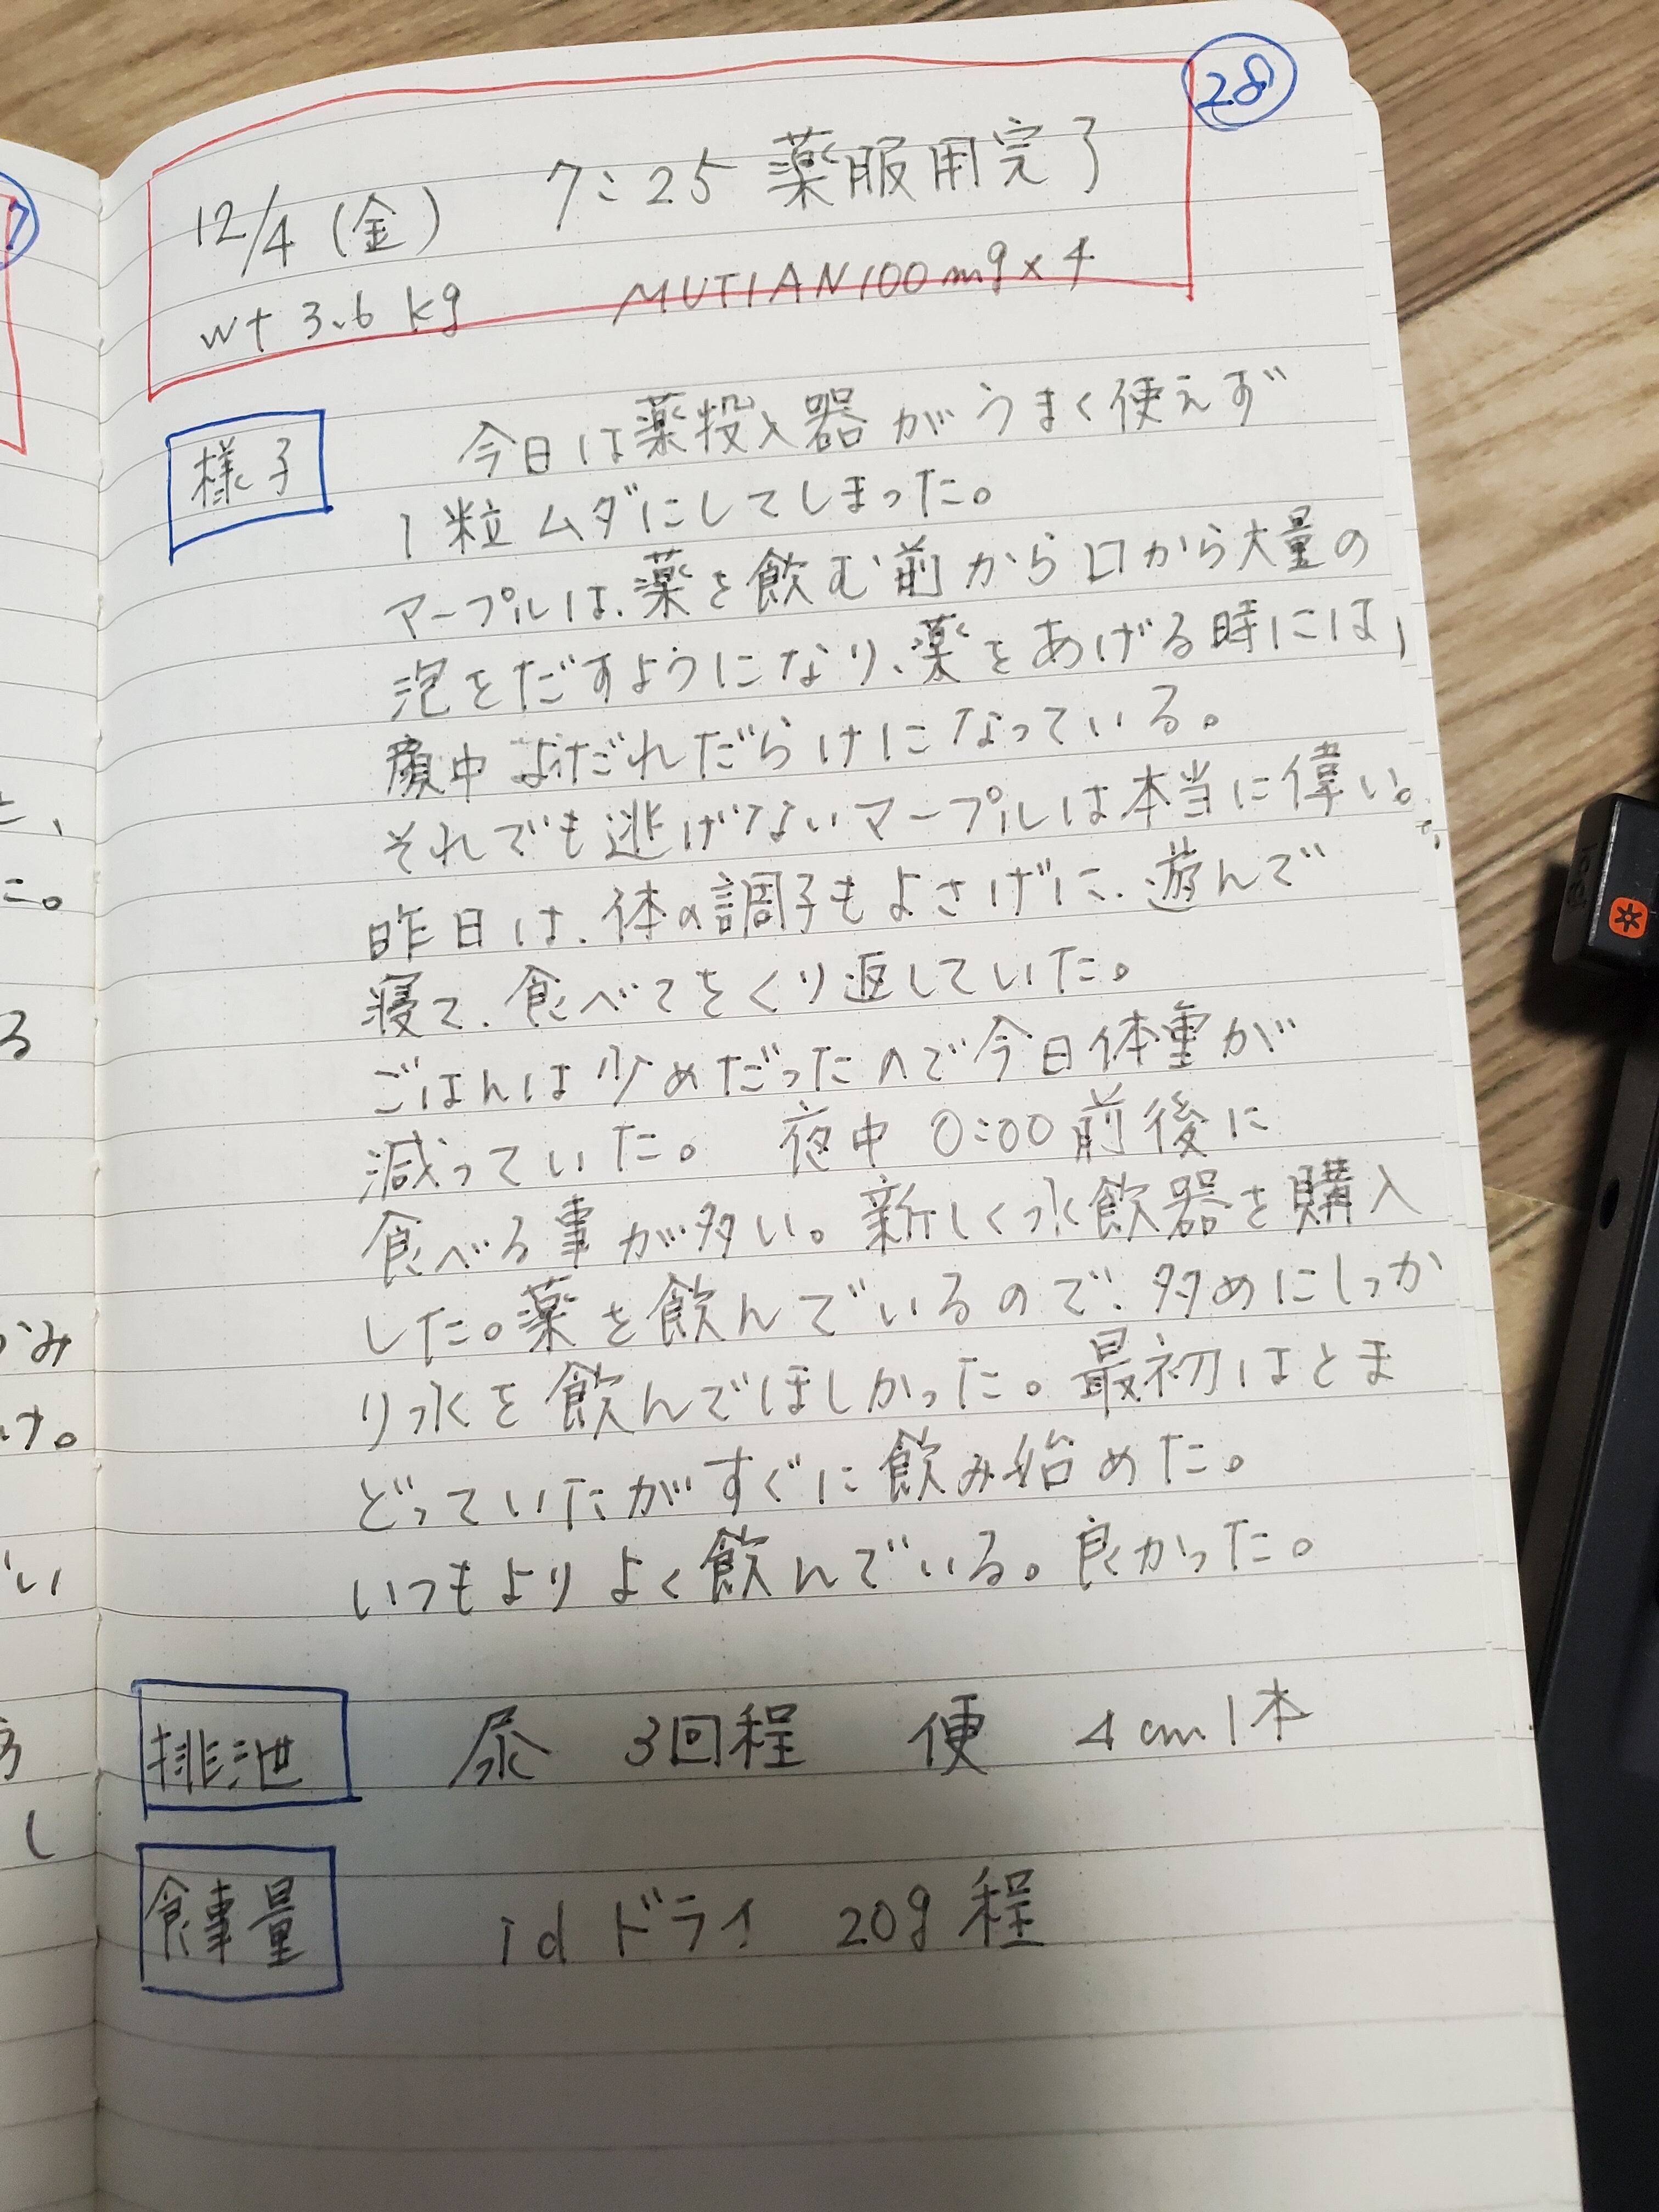 28
12/4(金) 7:25 薬服用完了
wt 3.6kg MUTIAN100mg×4
様子
今日は薬投入器がうまく使えず
1粒ムダにしてしまった。
マープルは、薬を飲む前から口から大量の
泡をだすようになり、薬をあげる時には、
顔中よだれだらけになっている。
それでも逃げないマープルは本当に偉い。
昨日は、体の調子もよさげに、遊んで
寝て、食べてをくり返していた。
ごはんは少めだったので今日体重が
減っていた。 夜中 0:00前後に
食べる事が多い。新しく水飲器を購入
した。薬を飲んでいるので、多めにしっか
り水を飲んでほしかった。最初はとま
どっていたがすぐに飲み始めた。
いつもよりよく飲んでいる。良かった。
排泄 尿 3回程 便 4cm1本
食事量 id ドライ 20g程